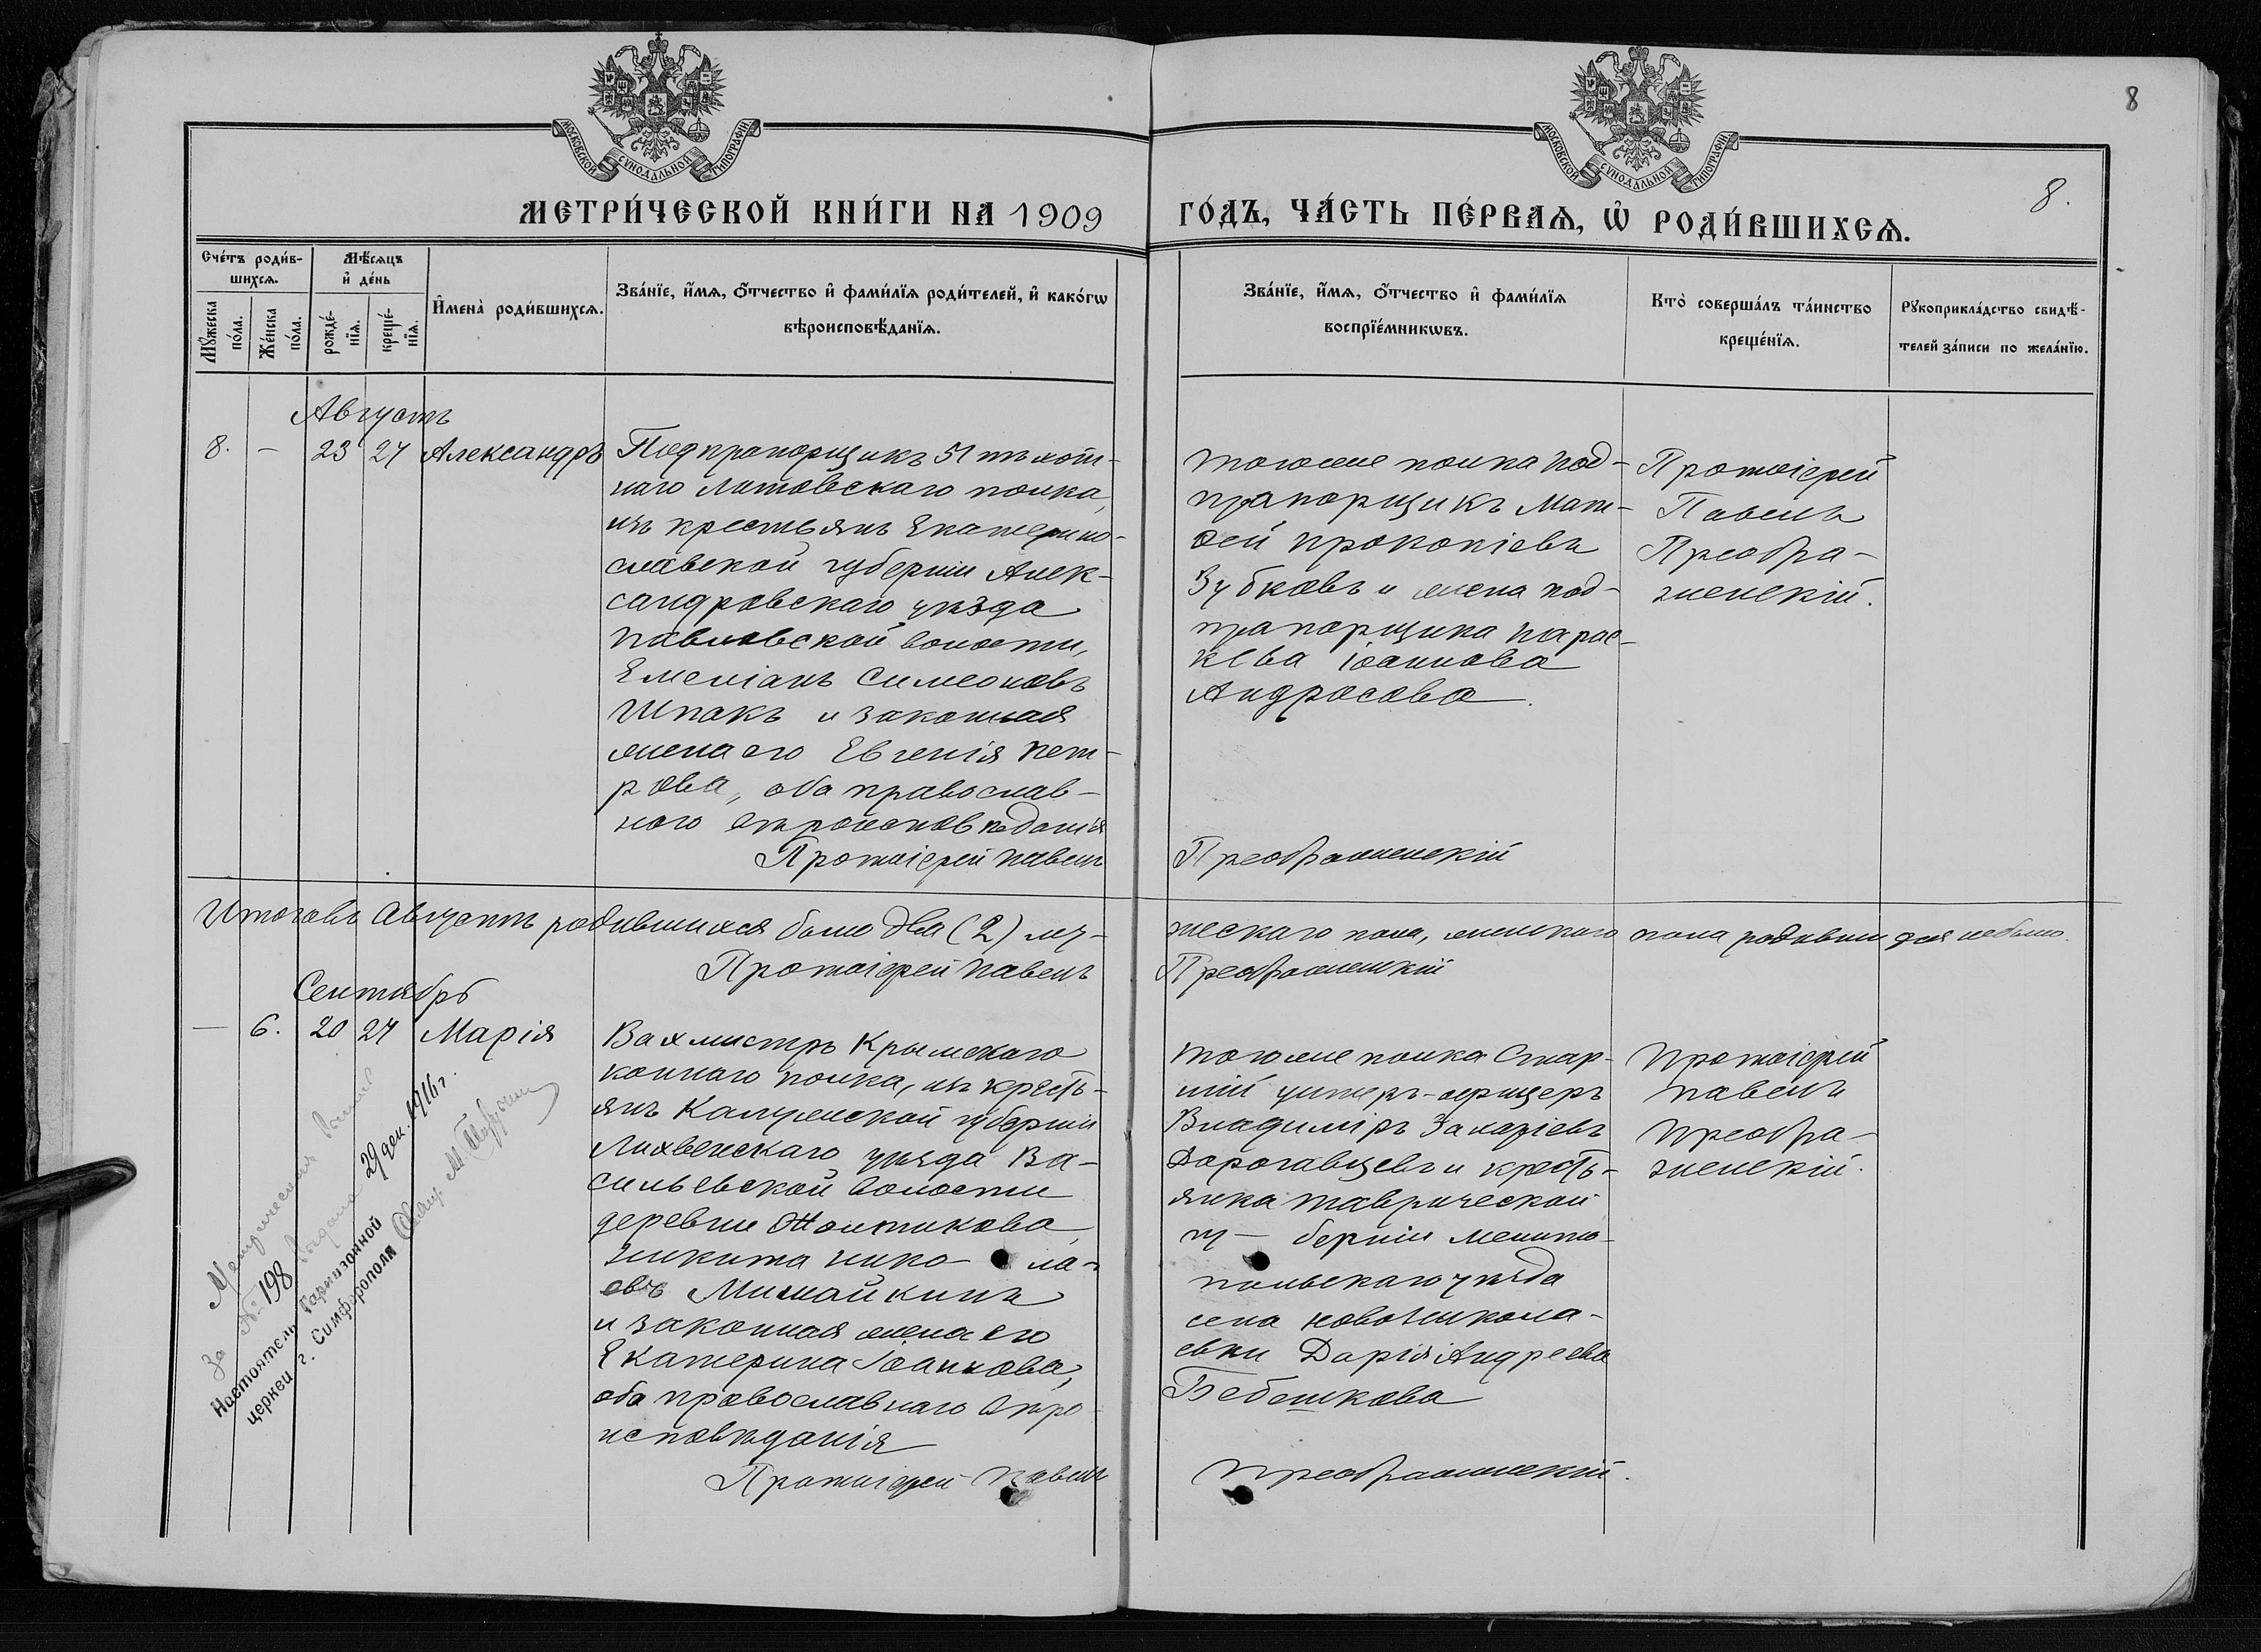 8
МОСКОВСКОЙ СѴНОДАЛЬНОЙ ТИПОГРАФІИ.
МОСКОВСКОЙ СѴНОДАЛЬНОЙ ТИПОГРАФІИ.
МЕТРИ́ЧЕСКОЙ КНИ́ГИ НА 1909
ГО́ДЪ, ЧА́СТЬ ПЕ́РВАѦ, Ѡ҆ РОДИ́ВШИХСѦ.
8.
Сче́тъ роди́в-
шихсѧ.
Мѣ́сѧцъ
и҆ де́нь
Мꙋ́жеска
по́ла.
Же́нска
по́ла.
рожде́-
нїѧ.
креще́-
нїѧ.
И҆мена̀ роди́вшихсѧ.
Зва́нїе, и҆́мѧ, ѻ҆́тчество и҆ фами́лїѧ роди́телей, и҆ како́гѡ
вѣроисповѣ́данїѧ.
Зва́нїе, и҆́мѧ, ѻ҆́тчество и҆ фами́лїѧ
воспрїе́мникѡвъ.
Кто̀ соверша́лъ та́инство
креще́нїѧ.
Рꙋкоприкла́дство свидѣ́-
телей за́писи по жела́нїю.
Августъ
8. — 23 24 Александръ
Подпрапорщикъ 51 пѣхот-
наго Литовскаго полка,
изъ крестьянъ Екатерино-
славской губерніи Алек-
сандровскаго уѣзда
Павловской волости,
Емеліанъ Симеоновъ
Шпакъ и законная
жена его Евгенія Пет-
рова, оба православ-
наго вѣроисповѣданія
Протоіерей Павелъ
тогоже полка под-
прапорщикъ Мат-
ѳей Прокопіевъ
Зубковъ и жена под-
прапорщика Парас-
кева Іоаннова
Андросова.
Преображенскій
Протоіерей
Павелъ
Преобра-
женскій.
Итого въ Августѣ родившихся было два (2) му-
жескаго пола, женскаго пола родившихся не было.
Протоіерей Павелъ
Преображенскій
Сентябрь
— 6. 20 24 Марія
Вахмистръ Крымскаго
коннаго полка, изъ кресть-
янъ Калужской губерніи
Лихвенскаго уѣзда Ва-
сильевской волости
деревни
Никита Нико-ла-
евъ Мишайкинъ
и законная жена его
Екатерина Іоаннова,
оба православнаго вѣро-
исповѣданія
Протоіерей Павелъ
тогоже полка Стар-
шій унтеръ-офицеръ
Владиміръ Захаріевъ
Дорогавцевъ и кресть-
янка Таврической
гу-берніи Мелито-
польскаго уѣзда
села Новоникола-
евки Дарія Андреева
Бебешкова
Преображенскій.
Протоіерей
Павелъ
Преобра-
женскій.
Метрическая
За № 198 выдана 29 дек. 1916 г.
Настоятель Гарнизонной
церкви г. Симферополя